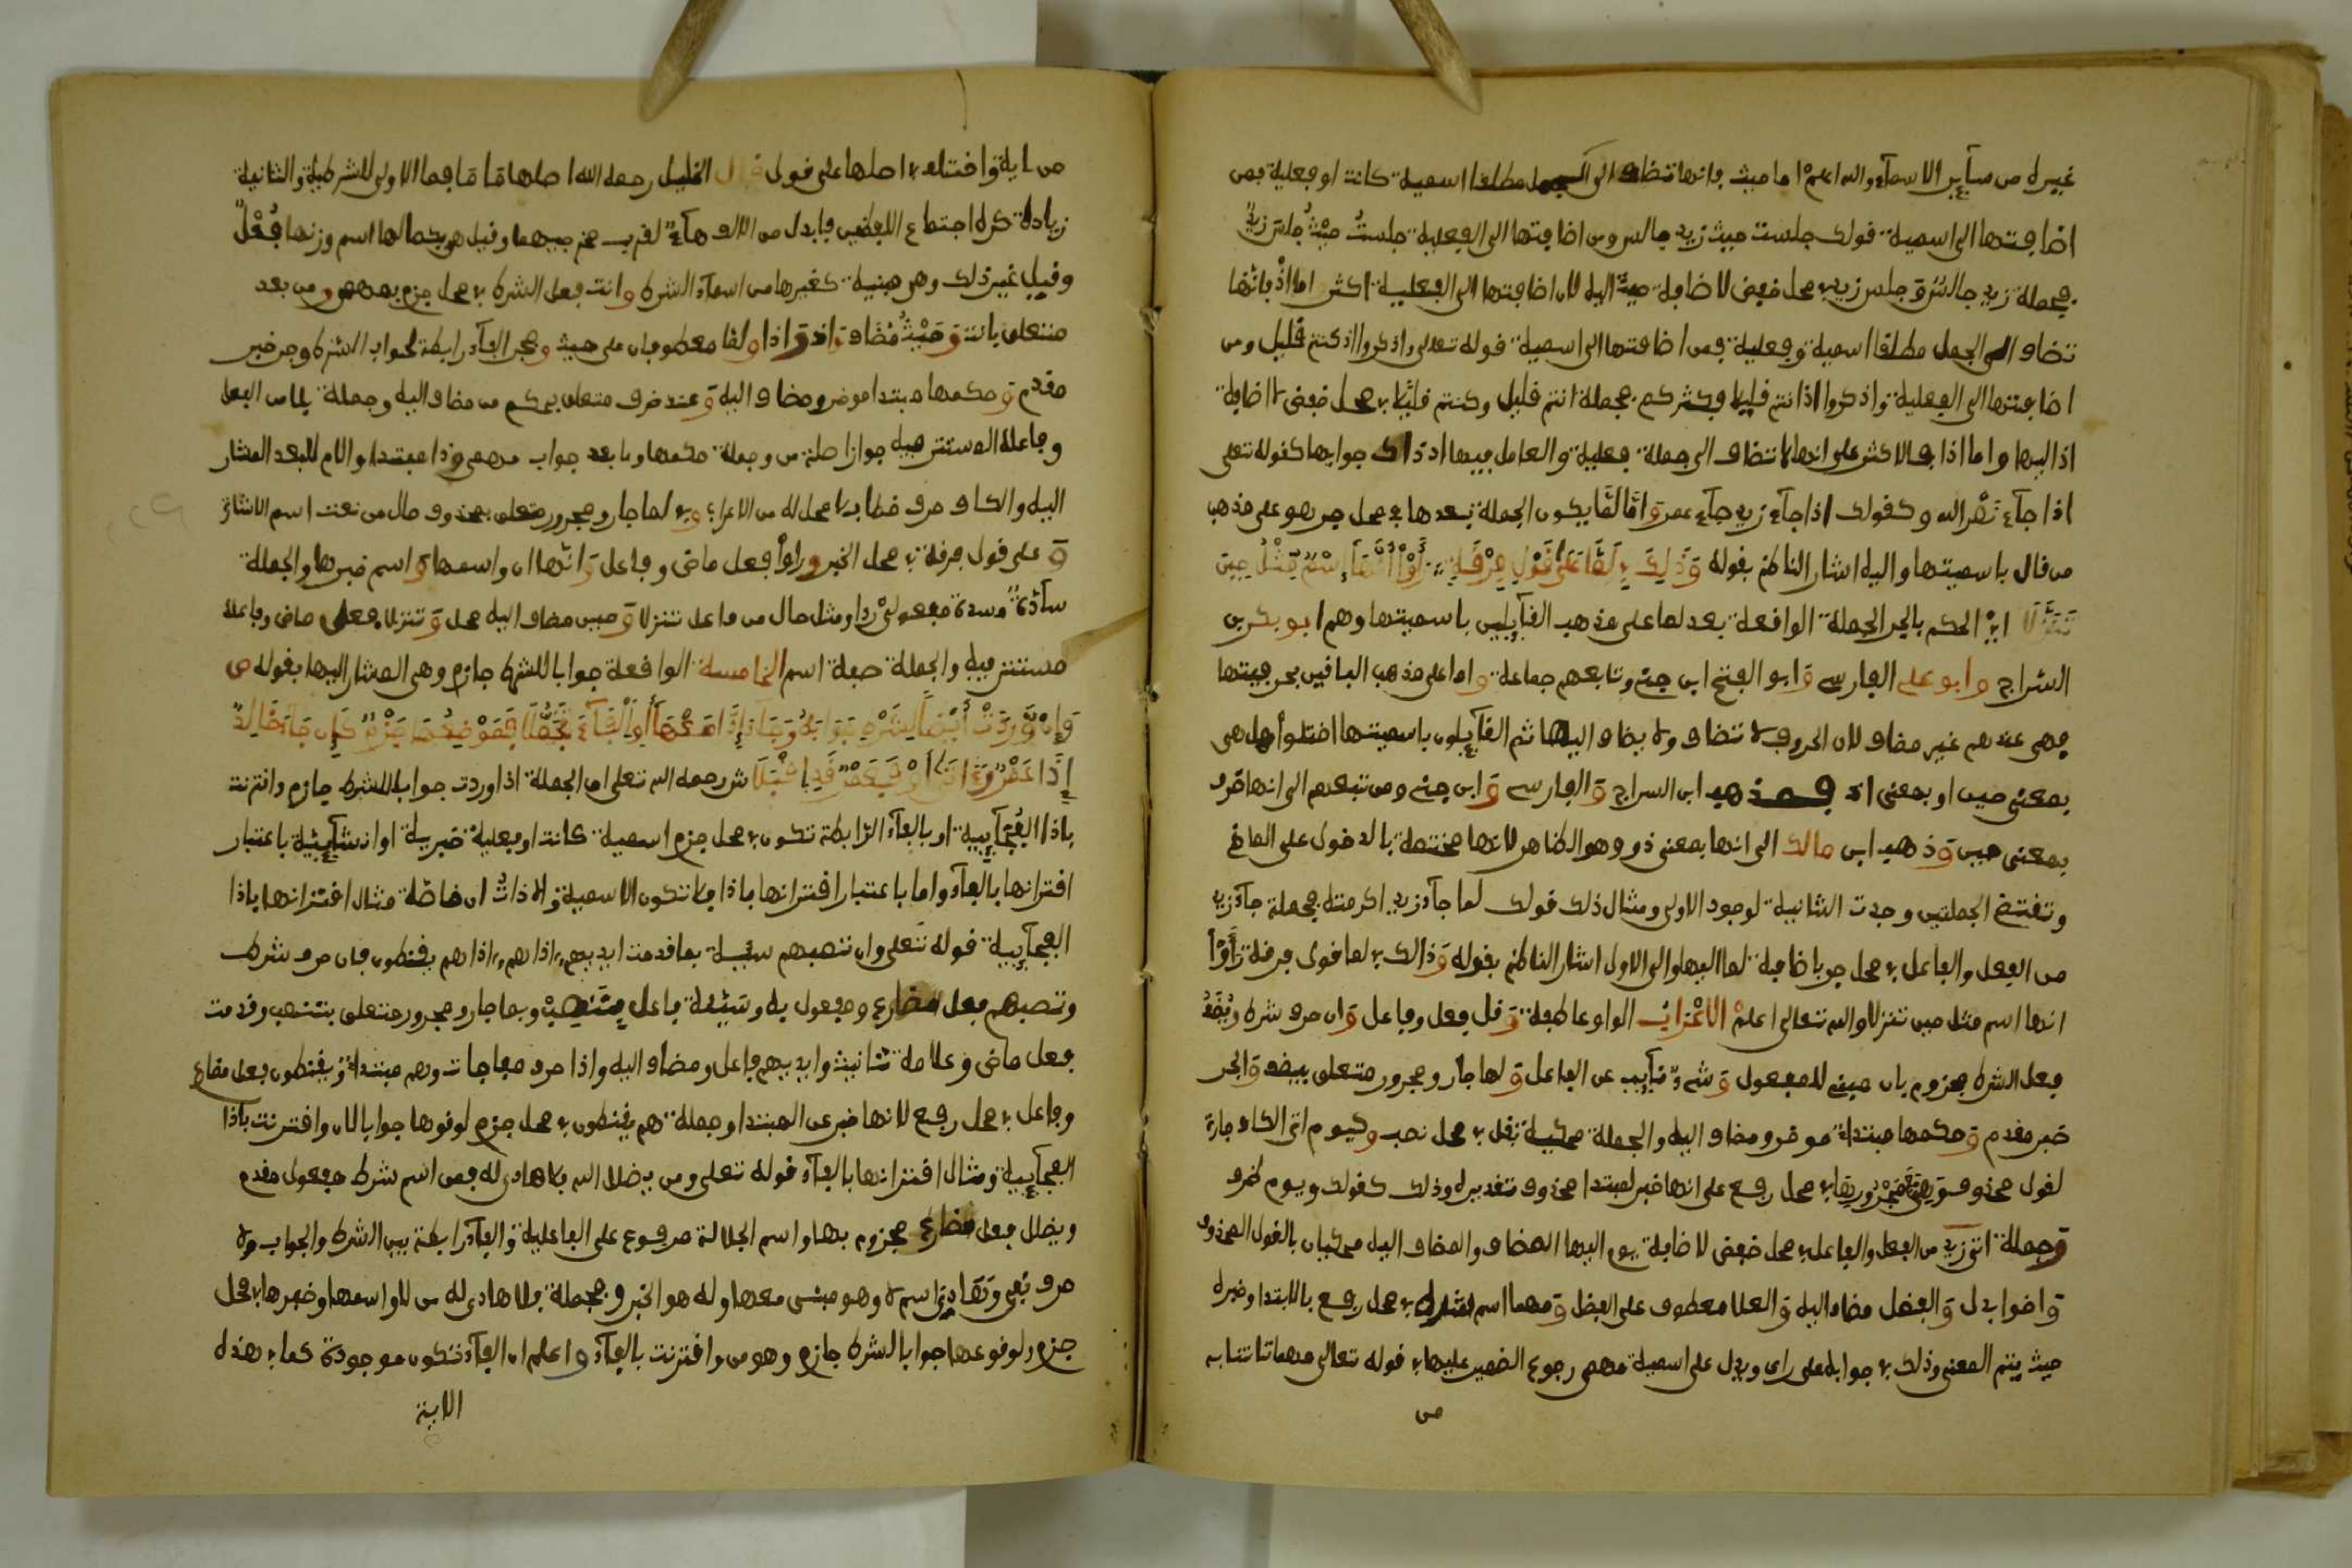 غيره من سآير الاسمآء والله اعلم اما حيث فانها تضاف الى الجمل مطلقا اسمية كانت او فعلية فمن
اضافتها الى اسمية قولك جلست حيث زيد جالس ومن اضافتها الى الفعلية جلستُ حيثُ جلس زيدٌ
فجملة زيد جالس وجلس زيد في محل خفض لاضافة حيث اليه لان اضافتها الى الفعلية اكثر اما اذ فانها
تضاف الى الجمل مطلقا اسمية وفعلية فمن اضافتها الى اسمية قوله تعلى واذكروا اذ كنتم قليل ومن
اضافتها الى الفعلية واذكروا اذ انتم قليلا فكثركم فجملة انتم قليل وكنتم قليلا في محل خفض لاضافة
اذ اليها واما اذا فالاكثر على انها لا تضاف الى جملة فعلية والعامل فيها اذ ذاك جوابها كقوله تعلى
اذا جآء نصر الله وكقولك اذا جآء زيد جآء عمر واما لما يكون الجملة بعدها في محل جر هو على مذهب
من قال باسميتها واليه اشار الناظم بقوله وَذَلِكَ فِي لَمَّا عَلَى قَوْلِ فِرْقَةٍ رَأَوْا أَنَّهَا إِسْمٌ كَمِثْلُ حِينَ
تَنَزَّلَا اي الحكم بالجر الجملة الواقعة بعد لما على مذهب القآيلين باسميتها وهم ابو بكر بن
السراج وابو على الفارسي وابو الفتح ابن جني وتابعهم جماعة واما على مذهب الباقين بحرفيتها
فهي عندهم غير مضاف لان الحروف لا تضاف ولا يضاف اليها ثم القآيلون باسميتها اختلفوا هل هي
بمعنى حين او بمعنى اذ فمذهب ابن السراج والفارسي وابن جني ومن تبعهم الى انها ظرف
بمعنى حين وذهب ابن مالك الى انها بمعنى ذو وهو الظاهر لانها مختصة بالدخول على الماضي
وتقتضي الجملتين وجدت الثانية لوجود الاولى ومثال ذلك قولك لما جآء زيد اكرمته فجملة جآء زيد
من الفعل والفاعل في محل جر باضافة لما اليها والى الاول اشار الناظم بقوله وذالك في لما قوى فرقة رَأَوْا
انها اسم مثل حين تنزلا والله تعالى اعلم الاعراب الواو عاطفة وقل فعل وفاعل وان حرف شرط ويُضَفْ
فعل الشرط مجزوم بان مبني للمفعول وشيء نآيب عن الفاعل ولها جار ومجرور متعلق بيضف والجر
خبر مقدم وحكمها مبتدا موخر ومضاف اليه والجملة محكية بقل في محل نصب وكيوم اتى الكاف جارة
لقول محذوف في محل رفع على انها خبر لمبتدا محذوف تقديره وذلك كقولك ويوم ظرف
وجملة اتى زيد من الفعل والفاعل في محل خفض لاضافة يوم اليها المضاف والمضاف اليه محكيان بالقول المحذوف
واخوا بدل والفضل مضاف اليه والعلا معطوف على الفضل ومهما اسم شرط في محل رفع بالابتدا وخبره
حيث يتم المعنى وذلك في جوابه على راى ويدل على اسمية مهمى رجوع الضمير عليها في قوله تعالى مهما تاتنا به
من
من اية واختلف في اصلها على قول قال الخليل رحمه الله اصلها ما ما فما الاولى للشرطية والثانية
زيادة كره اجتماع اللفظين فابدل من الالف هآء لقرب مخرجيهما وقيل هي بكمالها اسم وزنها فُعْلَى
وقيل غير ذلك وهي مبنية كغيرها من اسمآء الشرط وانت فعل الشرط في محل جزم بمهمى ومن بعد
متعلق باتت وحَيْثُ مُضَاف واذ واذا ولما معطوفان على حيث وفجر الفآء رابطة لجواب الشرط وجر خبر
مقدم وحكمها مبتدا موخر ومضاف اليه وعند ظرف متعلق بحكم من مضاف اليه وجملة يلا من الفعل
وفاعله المستتر فيه جوازا صلة من وجملة حكمها وما بعد جواب مهمى وذا مبتدا والام للبعد المشار
اليه والكاف حرف خطاب لا محل له من الاعراب وفي لما جار ومجرور متعلق بمحذوف حال من نعت اسم الاشارة
وعلى قول فرقة في محل الخبر وراوا فعل ماضي وفاعل وانها ان واسمها واسم خبرها والجملة
سآدة مسدة مفعولي را ومثل حال من فاعل تنزلا وحين مضاف اليه محل وتنزلا فعل ماضي وفاعله
مستتر فيه والجملة صفة اسم الخامسة الواقعة جوابا للشرط جازم وهي المشار اليها بقوله ص
وَإِنْ وَرَدَتْ أَيْضًا لِشَرْطٍ جَوَابُهُ وَجَآءَ إِذَا مَعْهَا أَوِ الْفَآءَ تُجْتَلَا فَمَوْضِعُهَا جَزْمٌ كَإِن جَآءَ خَالِدٌ
إِذَا عَمْرٌو أَتَى أَوْ فَيَعْمُرْ قَدِ اقْبَلَا ش رحمه الله تعلى ان الجملة اذا وردت جوابا للشرط جازم واقترنت
باذا الفُجآيية او بالفآء الرابطة تكون في محل جزم اسمية كانت او فعلية خبرية او انشآيية باعتبار
اقترانها بالفآء واما باعتبار اقترانها باذا فلا تكون الا اسمية والاذاتُ ان خاصة مثال اقترانها باذا
الفجآيية قوله تعلى وان تصبهم سيية بما قدمت ايديهم اذا هم اذا هم يقنطون فان حرف شرط
وتصبهم فعل مضارع ومفعول به وسَيئة فاعل وبما جار ومجرور متعلق بتصب وقدمت
فعل ماضى وعلامة تانيث وايديهم فاعل ومضاف اليه واذا حرف مفاجات وهم مبتدا ويقنطون فعل مضارع
وفاعل في محل رفع لانها خبر عن المبتدا وجملة هم يقنطون في محل جزم لوقوعها جوابا لان واقترنت باذا
الفجآيية ومثال اقترانها بالفآء قوله تعلى ومن يضلل الله فلا هادى له فمن اسم شرط مفعول مقدم
ويضلل فعل مضارع مجزوم بها واسم الجلالة مرفوع على الفاعلية والفآء رابطة بين الشرط والجواب ولا
حرف نفي وهادي اسم لا وهو مبنى معها وله هو الخبر وجملة فلا هادى له من لا واسمها وخبرها في محل
جزم لوقوعها جوابا لشرط جازم وهو من واقترنت بالفآء واعلم ان الفآء تكون موجودة كما في هذه
الاية